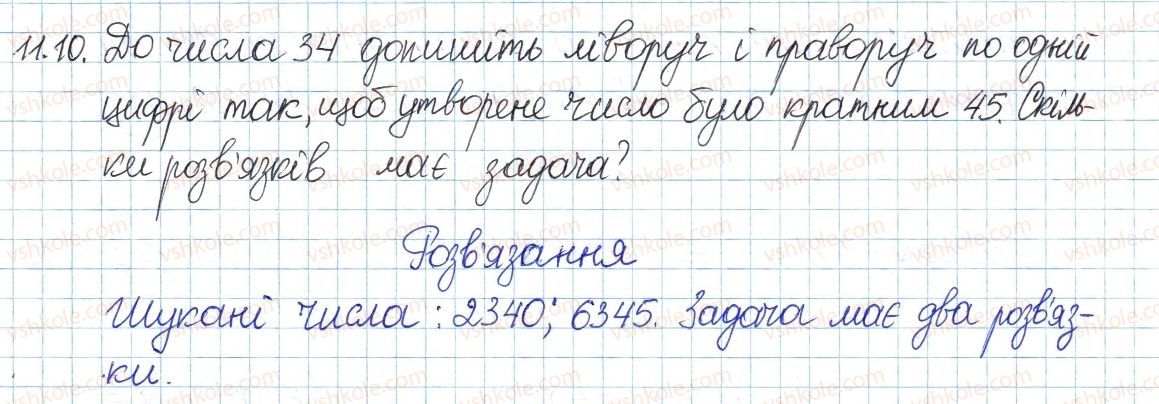 11.10. До числа 34 допишіть ліворуч і праворуч по одній
цифрі так, щоб утворене число було кратним 45. Скіль-
ки розв'язків має задача?
Розв'язання
Шукані числа: 2340; 6345. Задача має два розв'яз-
ки.